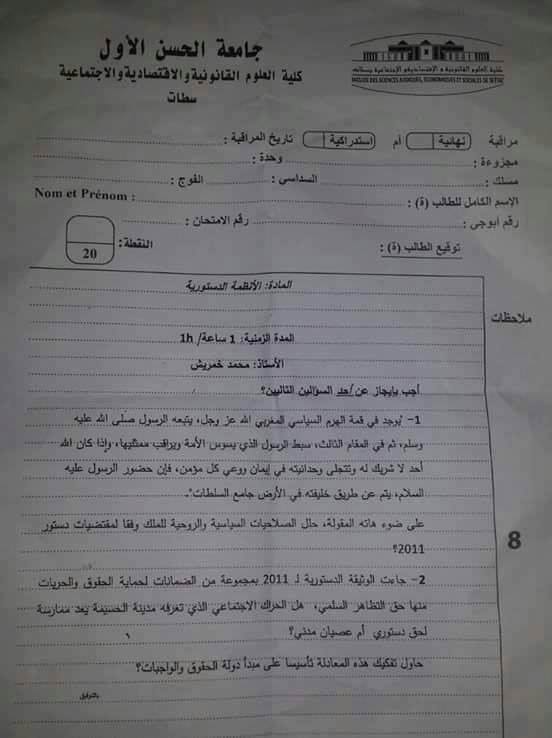 جامعة الحسن الأول
كلية العلوم القانونية والاقتصادية والاجتماعية
سطات
كلية العلوم القانونية و الإقتصادية و الإجتماعية بسطات
FACULTE DES SCIENCES JURIDIQUES, ECONOMIQUES ET SOCIALES DE SETTAT
مراقبة نهائية أم إستدراكية تاريخ المراقبة :
مجزوءة : وحدة :
مسلك : السداسي : الفوج :
الإسم الكامل للطالب (ة) : Nom et Prénom :
رقم أبوجي : رقم الامتحان :
توقيع الطالب (ة) : النقطة :
20
ملاحظات
المادة: الأنظمة الدستورية
المدة الزمنية: 1 ساعة/ 1h
الأستاذ: محمد خمريش
أجب بإيجاز عن أحد السؤالين التاليين؟
1- يوجد في قمة الهرم السياسي المغربي الله عز وجل، يتبعه الرسول صلى الله عليه
وسلم، ثم في المقام الثالث، سبط الرسول الذي يسوس الأمة ويراقب ممثليها، وإذا كان الله
أحد لا شريك له وتتجلى وحدانيته في إيمان ووعي كل مؤمن، فإن حضور الرسول عليه
السلام، يتم عن طريق خليفته في الأرض جامع السلطات".
على ضوء هاته المقولة، حلل الصلاحيات السياسية والروحية للملك وفقا لمقتضيات دستور
2011؟
8
2- جاءت الوثيقة الدستورية لـ 2011 بمجموعة من الضمانات لحماية الحقوق والحريات
منها حق التظاهر السلمي، هل الحراك الاجتماعي الذي تعرفه مدينة الحسيمة يعد ممارسة
لحق دستوري أم عصيان مدني؟
حاول تفكيك هذه المعادلة تأسيسا على مبدأ دولة الحقوق والواجبات؟
بالتوفيق